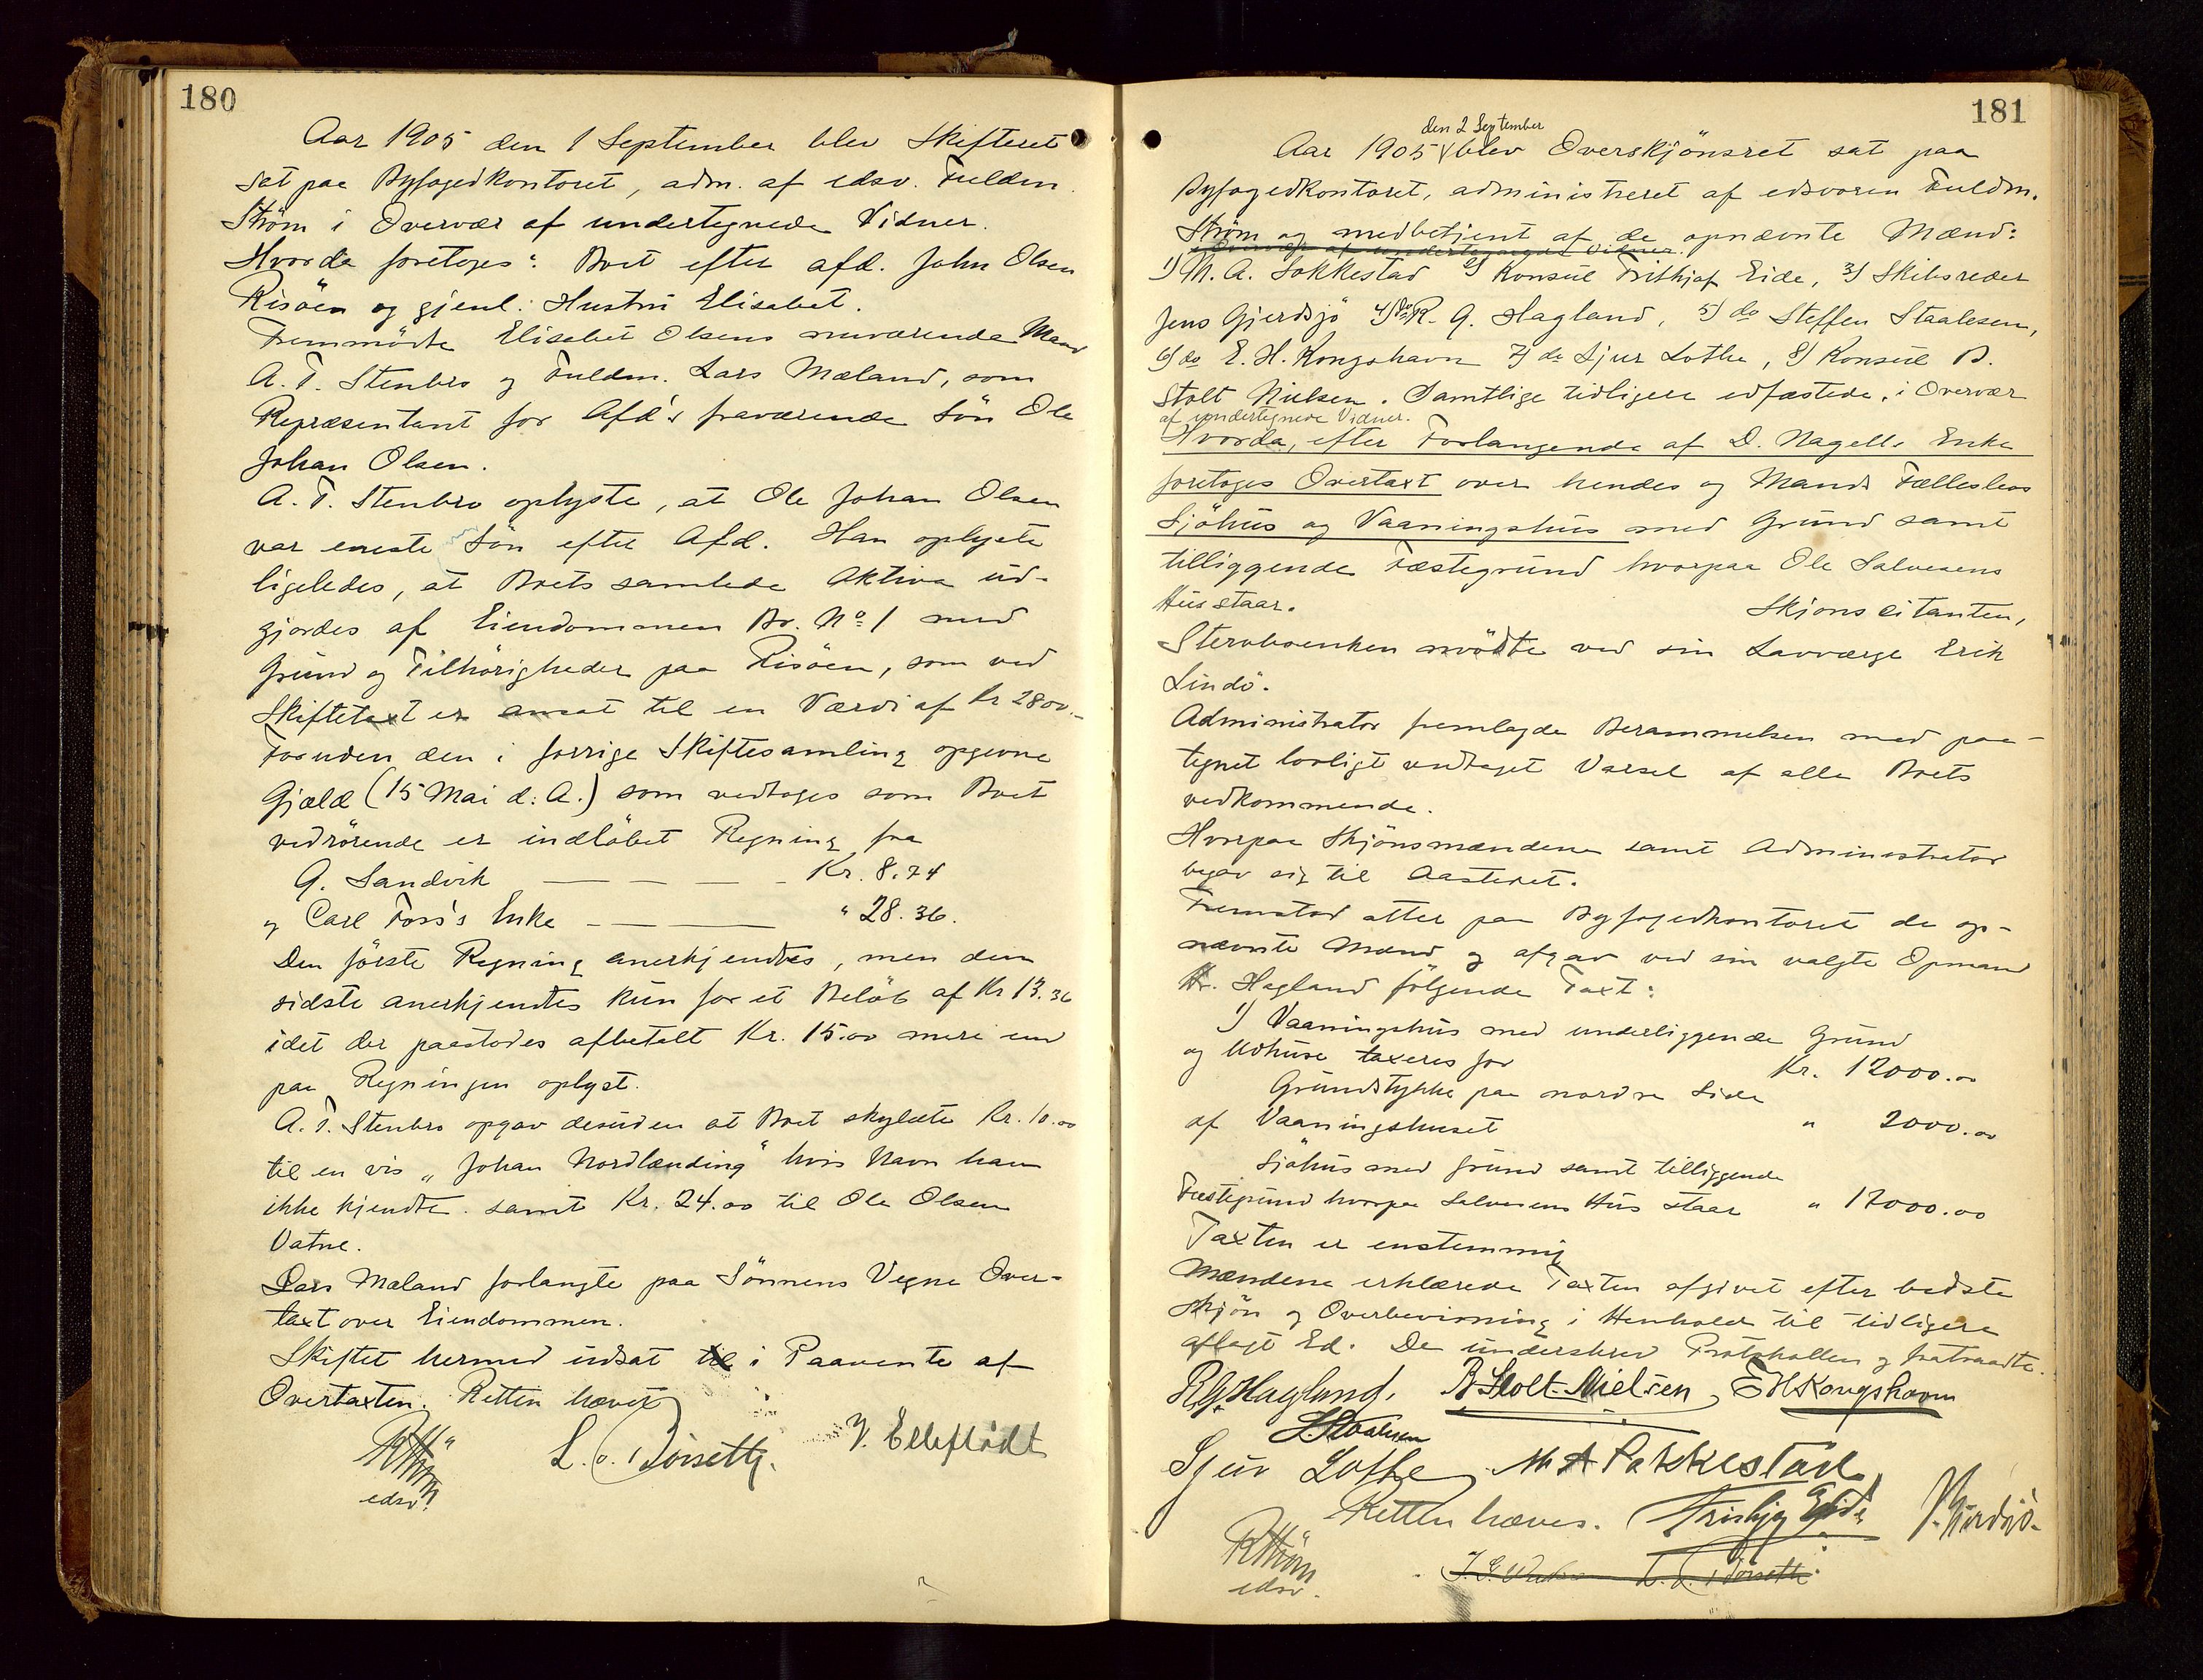 180
Aar 1905 den 1 September blev Skifteret
sat paa Byfogedkontoret, adm. af edsv. Fuldm.
Strøm i Overvær af undertegnede Vidner.
Hvorda foretoges: Boet efter afd. John Olsen
Risøen og gjenl. Hustru Elisabet.
Fremmødte Elisabet Olsens nuværende Mand
A. T. Stenbro og Fuldm. Lars Mæland, som
Repræsentant for Afd's fraværende Søn Ole
Johan Olsen.
A. T. Stenbro oplyste, at Ole Johan Olsen
var eneste Søn efter Afd. Han oplyste
ligeledes, at Boets samlede Aktiva ud-
gjordes af Eiendommen Br. No 1 med
Grund og Tilhørigheder paa Risøen, som ved
Skiftetaxt er ansat til en Værdi af Kr 2800.-
Foruden den i forrige Skiftesamling opgivne
Gjæld (15 Mai d. A.) som vedtoges som Boet
vedrørende er indløbet Regning fra
G. Sandvik — — — Kr. 8.74
og Carl Foss's Enke — — — " 28.36.
Den første Regning anerkjendtes, men den
sidste anerkjendtes kun for et Beløb af Kr 13.36
idet der paastodes afbetalt Kr. 15.00 mere end
paa Regningen oplyst.
A. T. Stenbro opgav desuden at Boet skyldte Kr. 10.00
til en vis „Johan Nordlænding" hvis Navn han
ikke kjendte. samt Kr. 24.00 til Ole Olsen
Vatne.
Lars Mæland forlangte paa Sønnens Vegne Over-
taxt over Eiendommen.
Skiftet hermed udsat til i Paavente af
Overtaxten. Retten hævet
RStrøm L. O. Dørseth. J. Elleflødt
edsv.
181
den 2 September
Aar 1905 blev Overskjönsret sat paa
Byfogedkontoret, administreret af edsvoren Fuldm.
Strøm og medbetjent af de opnævnte Mænd:
i Overvær af undertegnede Vidner.
1) M. A. Sakkestad 2) Konsul Frithjof Eide, 3) Skibsreder
Jens Gjerdsjö 4) do R. G. Hagland, 5) do Steffen Staalesen,
6) do E. H. Kongshavn 7) do Sjur Lothe, 8) Konsul B.
Stolt Nielsen. Samtlige tidligere edfæstede, i Overvær
af undertegnede Vidner.
Hvorda, efter Forlangende af D. Nagells Enke
foretoges Overtaxt over hendes og Mands Fællesbos
Sjöhus og Vaaningshus med Grund samt
tilliggende Fæstegrund hvorpaa Ole Salvesens
Hus staar. Skjonscitanten,
Stervboenken mødte ved sin Lavværge Erik
Lindø.
Administrator fremlagde Berammelsen med paa-
tegnet lovligt vedtaget Varsel af alle Boets
vedkommende.
Hvorpaa Skjönsmændene samt Administrator
begav sig til Aastedet.
Fremstod atter paa Byfogedkontoret de op-
nævnte Mænd og afgav ved sin valgte Opmand
Hr. Hagland følgende Taxt:
1) Vaaningshus med underliggende Grund
og Udhuse taxeres for Kr. 12000.00
Grundstykke paa nordre Side
af Vaaningshuset " 2000.00
Sjöhus med Grund samt tilliggende
Fæstegrund hvorpaa Salvesens Hus staar " 17000.00
Taxten er enstemmig
Mændene erklærede Taxten afgivet efter bedste
Skjön og Overbevisning i Henhold til tidligere
aflagt Ed. De underskrev Protokollen og fratraadte.
R.G. Hagland, B Stolt-Nielsen, E H Kongshavn
S. Staalesen
Sjur Lothe M A Sakkestad
Retten hæves. Frithjof Eide J. Gjerdsjö.
RStrøm L. O. Dørseth
edsv.